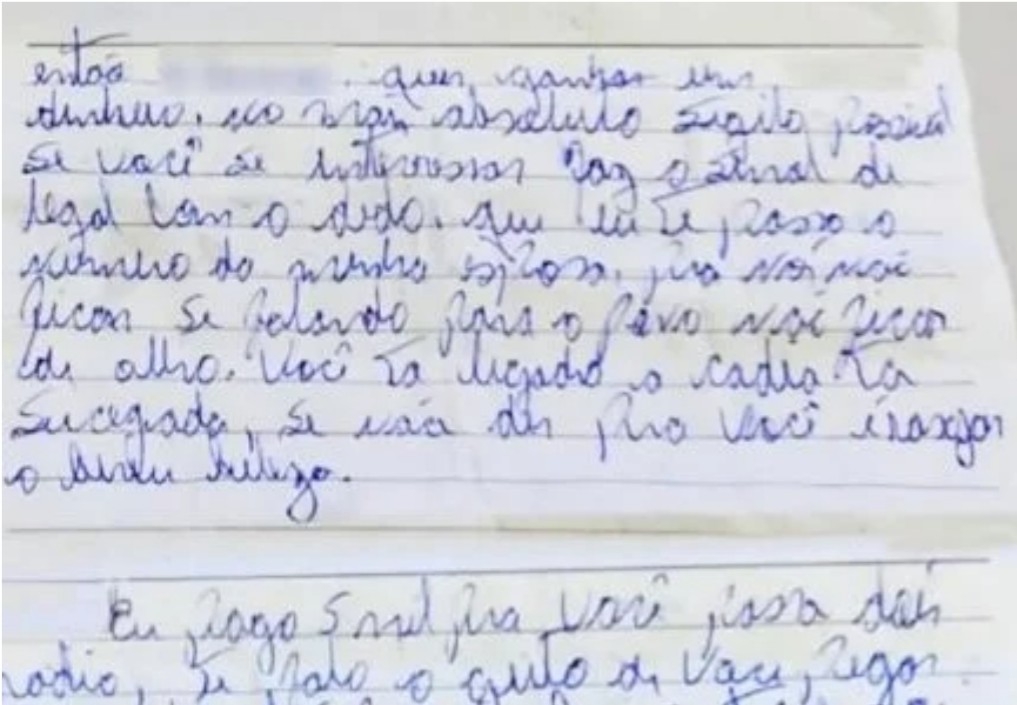 então quer ganhar um
dinheiro. no mais absoluto sigilo possivel
se você se interessar faz o sinal de
legal com o dedo. que eu te passo o
numero da minha esposa. pra nois não
ficar se falando para o povo não ficar
de olho. Você ta ligado a cadeia ta
sucegada, se não der pra você
o meu beleza.
Eu pago 5 mil pra você passa dois
radio, te falo o geito de você pegar